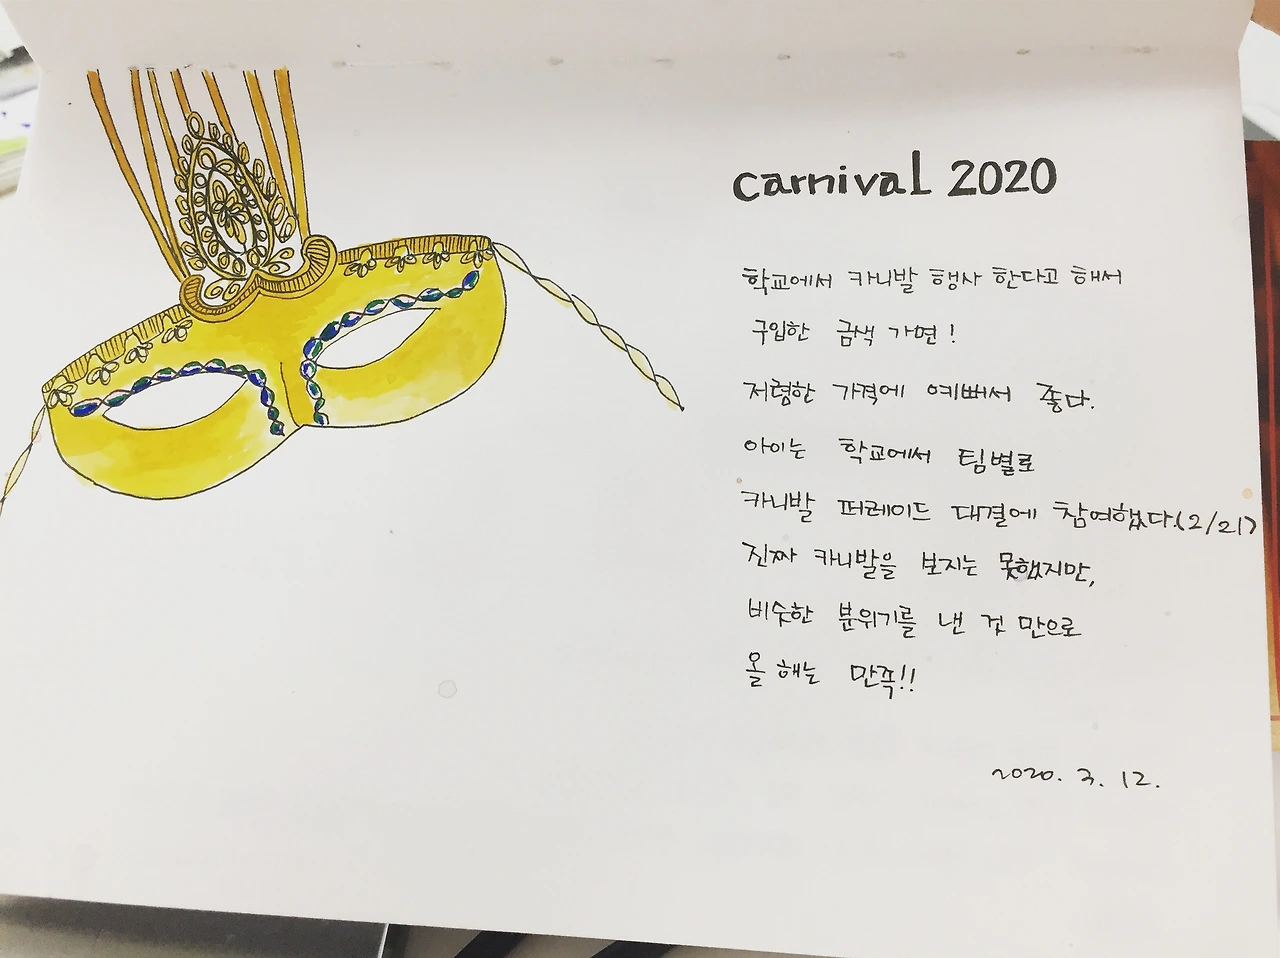 carnival 2020
학교에서 카니발 행사 한다고 해서
구입한 금색 가면!
저렴한 가격에 예뻐서 좋다.
아이는 학교에서 팀별로
카니발 퍼레이드 대결에 참여했다.(2/21)
진짜 카니발을 보지는 못했지만,
비슷한 분위기를 낸 것 만으로
올 해는 만족!!
2020. 3. 12.